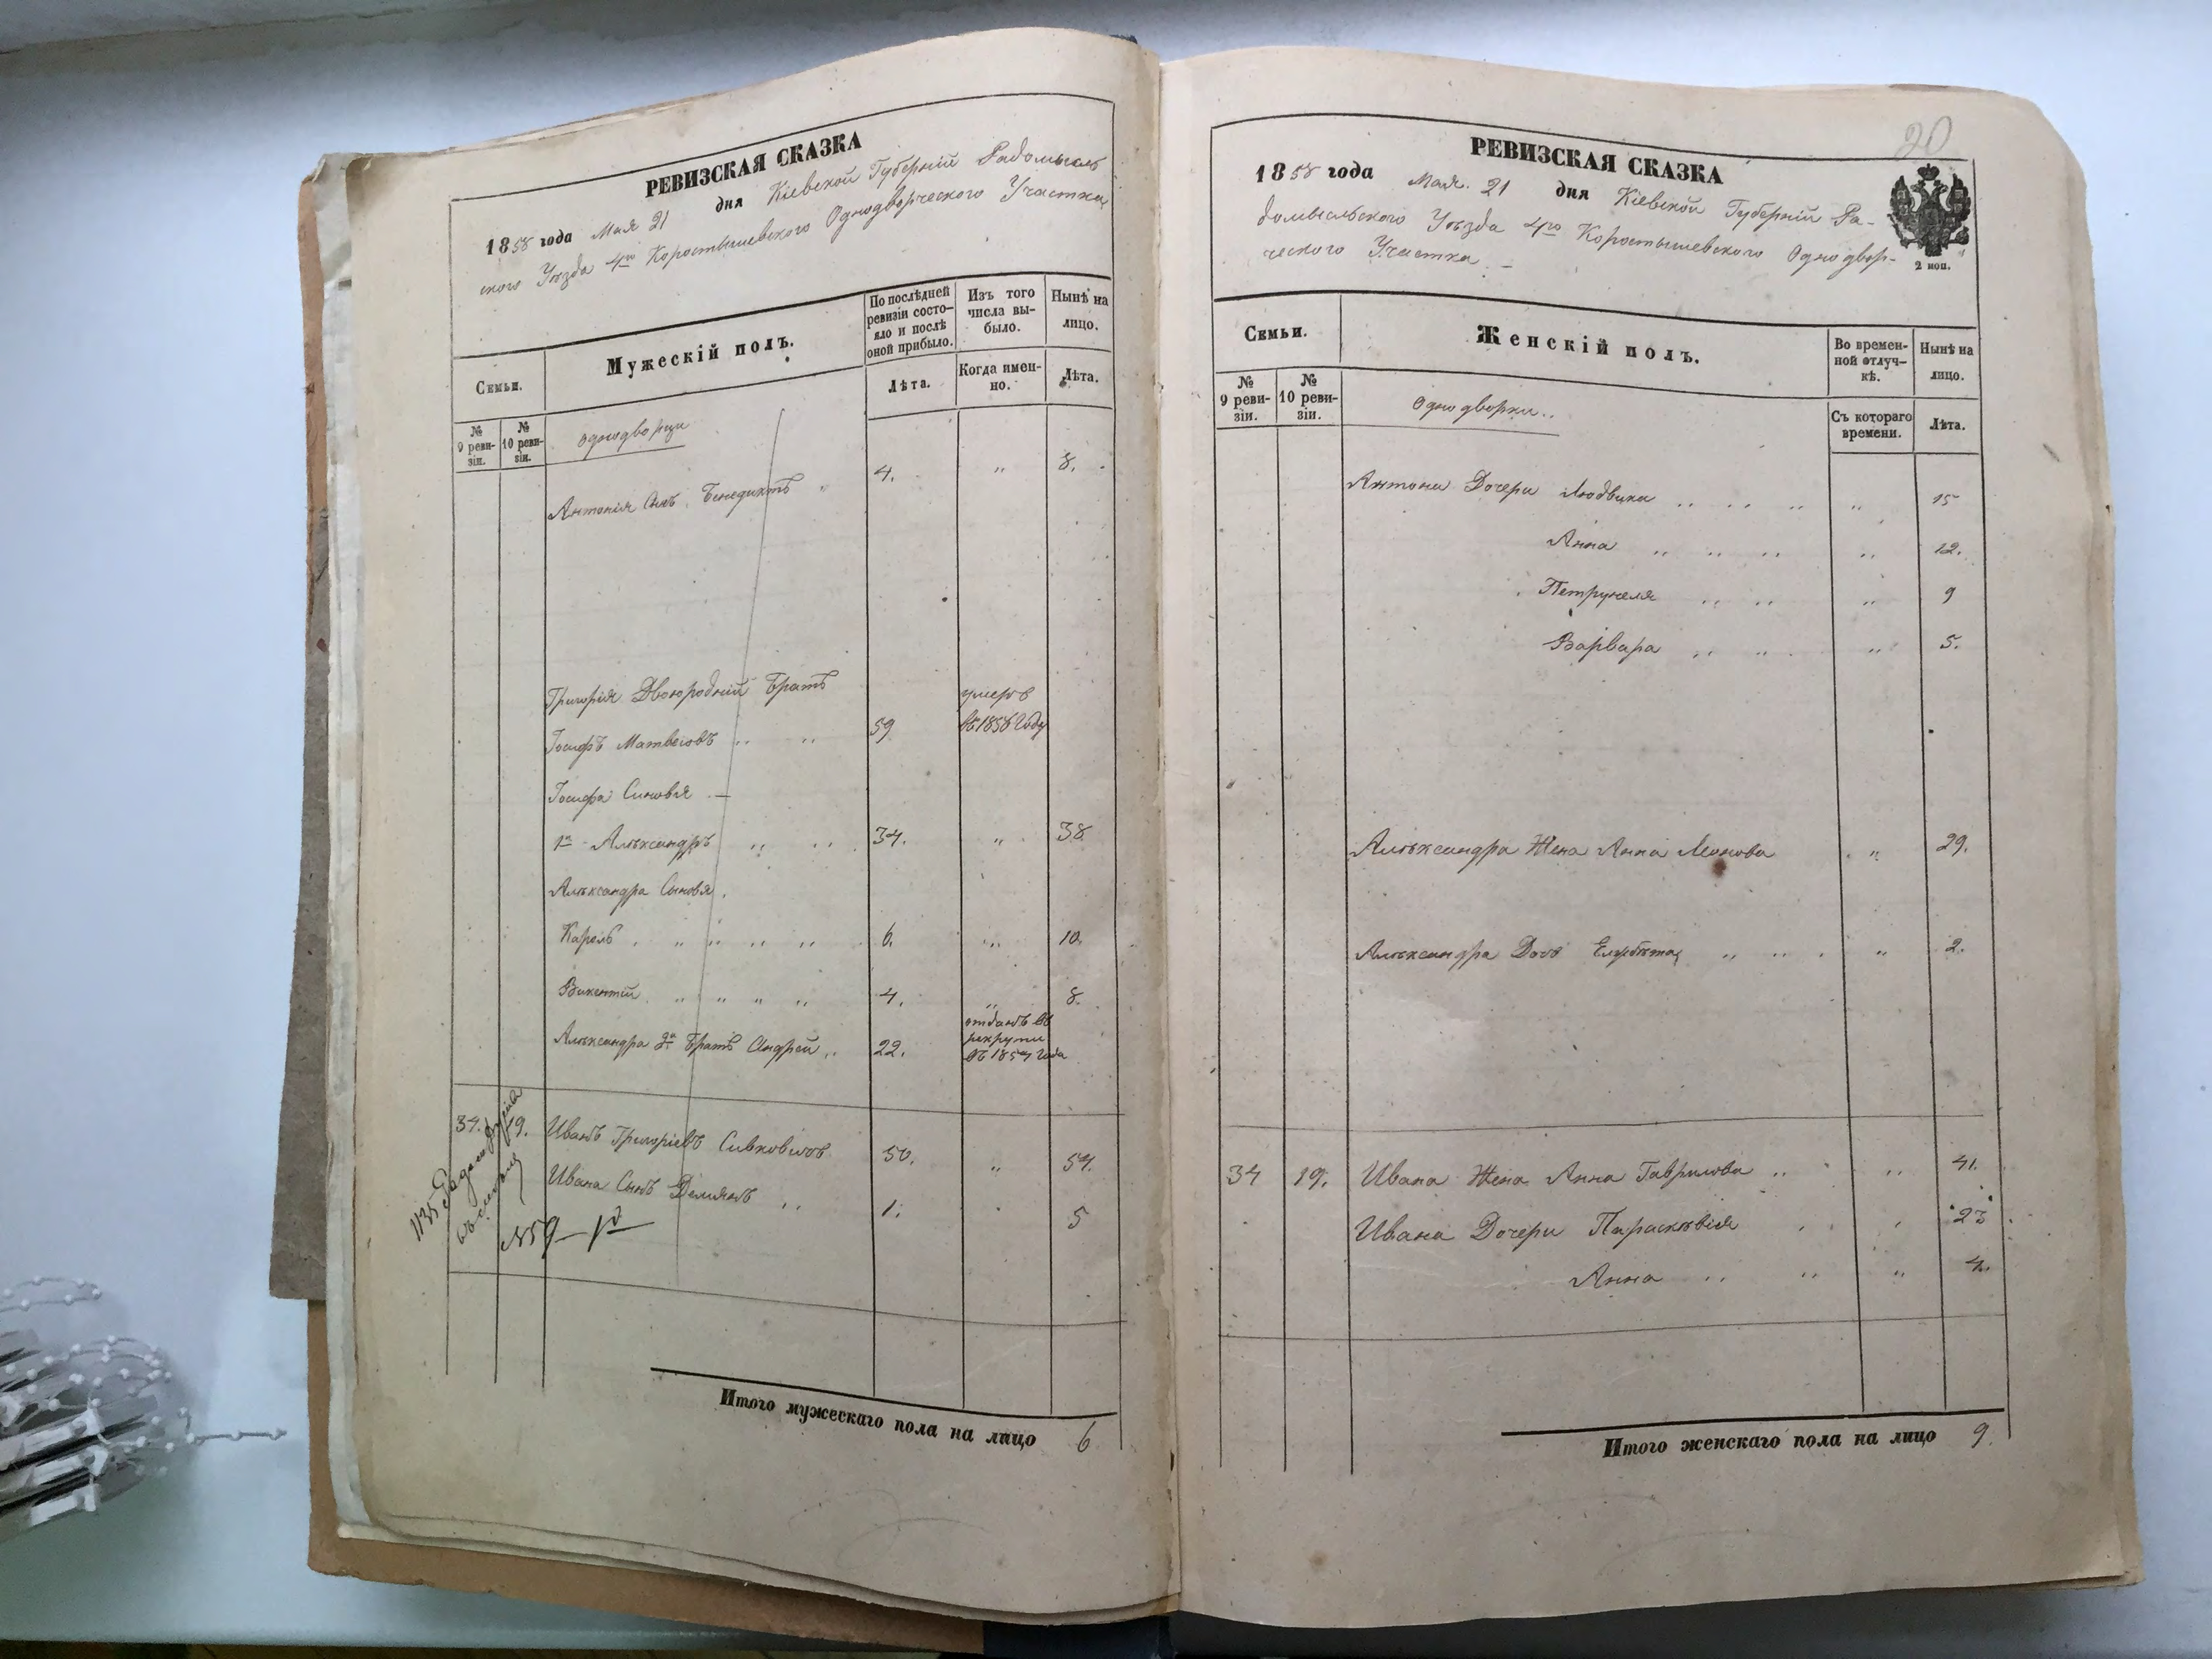 РЕВИЗСКАЯ СКАЗКА
1858 года Мая 21 дня Кіевской Губерніи Радомысль
ского Уѣзда 4го Коростышевского Однодворческого Участка
Семьи.
Мужескій полъ.
По послѣдней ревизіи состо-
яло и послѣ
оной прибыло.
Изъ того
числа вы-
было.
Нынѣ на
лицо.
Лѣта.
Когда имен-
но.
Лѣта.
№
9 реви-
зіи.
№
10 реви-
зіи.
Однодворци
Антонія Сынъ Бенедиктъ 4. " 8.
Григорія Двоюродній Братъ
Іосифъ Матвеіовъ 59 умеръ въ 1856 Году
Іосифа Синовя —
1й Алѣксандръ 34. " 38
Алѣксандра Сыновя
Кароль 6. " 10.
Викентій 4. " 8.
Алѣксандра 2й Братъ Андрей 22. отданъ въ рекруты
34. 19. Иванъ Григоріевъ 50. " 54.
Ивана Сынъ Демиянъ 1. 5
Итого мужескаго пола на лицо 6
20
РЕВИЗСКАЯ СКАЗКА
1858 года Мая. 21 дня Кіевской Губерніи Ра-
домысльского Уѣзда 4го Коростышевского Однодвор-
ческого Участка. —
2 коп.
Семьи.
Женскій полъ.
Во времен-
ной отлуч-
кѣ.
Нынѣ на
лицо.
Съ котораго
времени.
Лѣта.
№
9 реви-
зіи.
№
10 реви-
зіи.
Однодворки
Антона Дочери Людвика " 15
Анна " 12.
Петрунеля " 9
Варвара " 5.
Алѣксандра Жена Анна Леонова " 29.
Алѣксандра Дочь " 2.
34 19. Ивана Жена Анна Гаврилова " 41.
Ивана Дочери Параскѣвія 23
Анна " 4.
Итого женскаго пола на лицо 9.